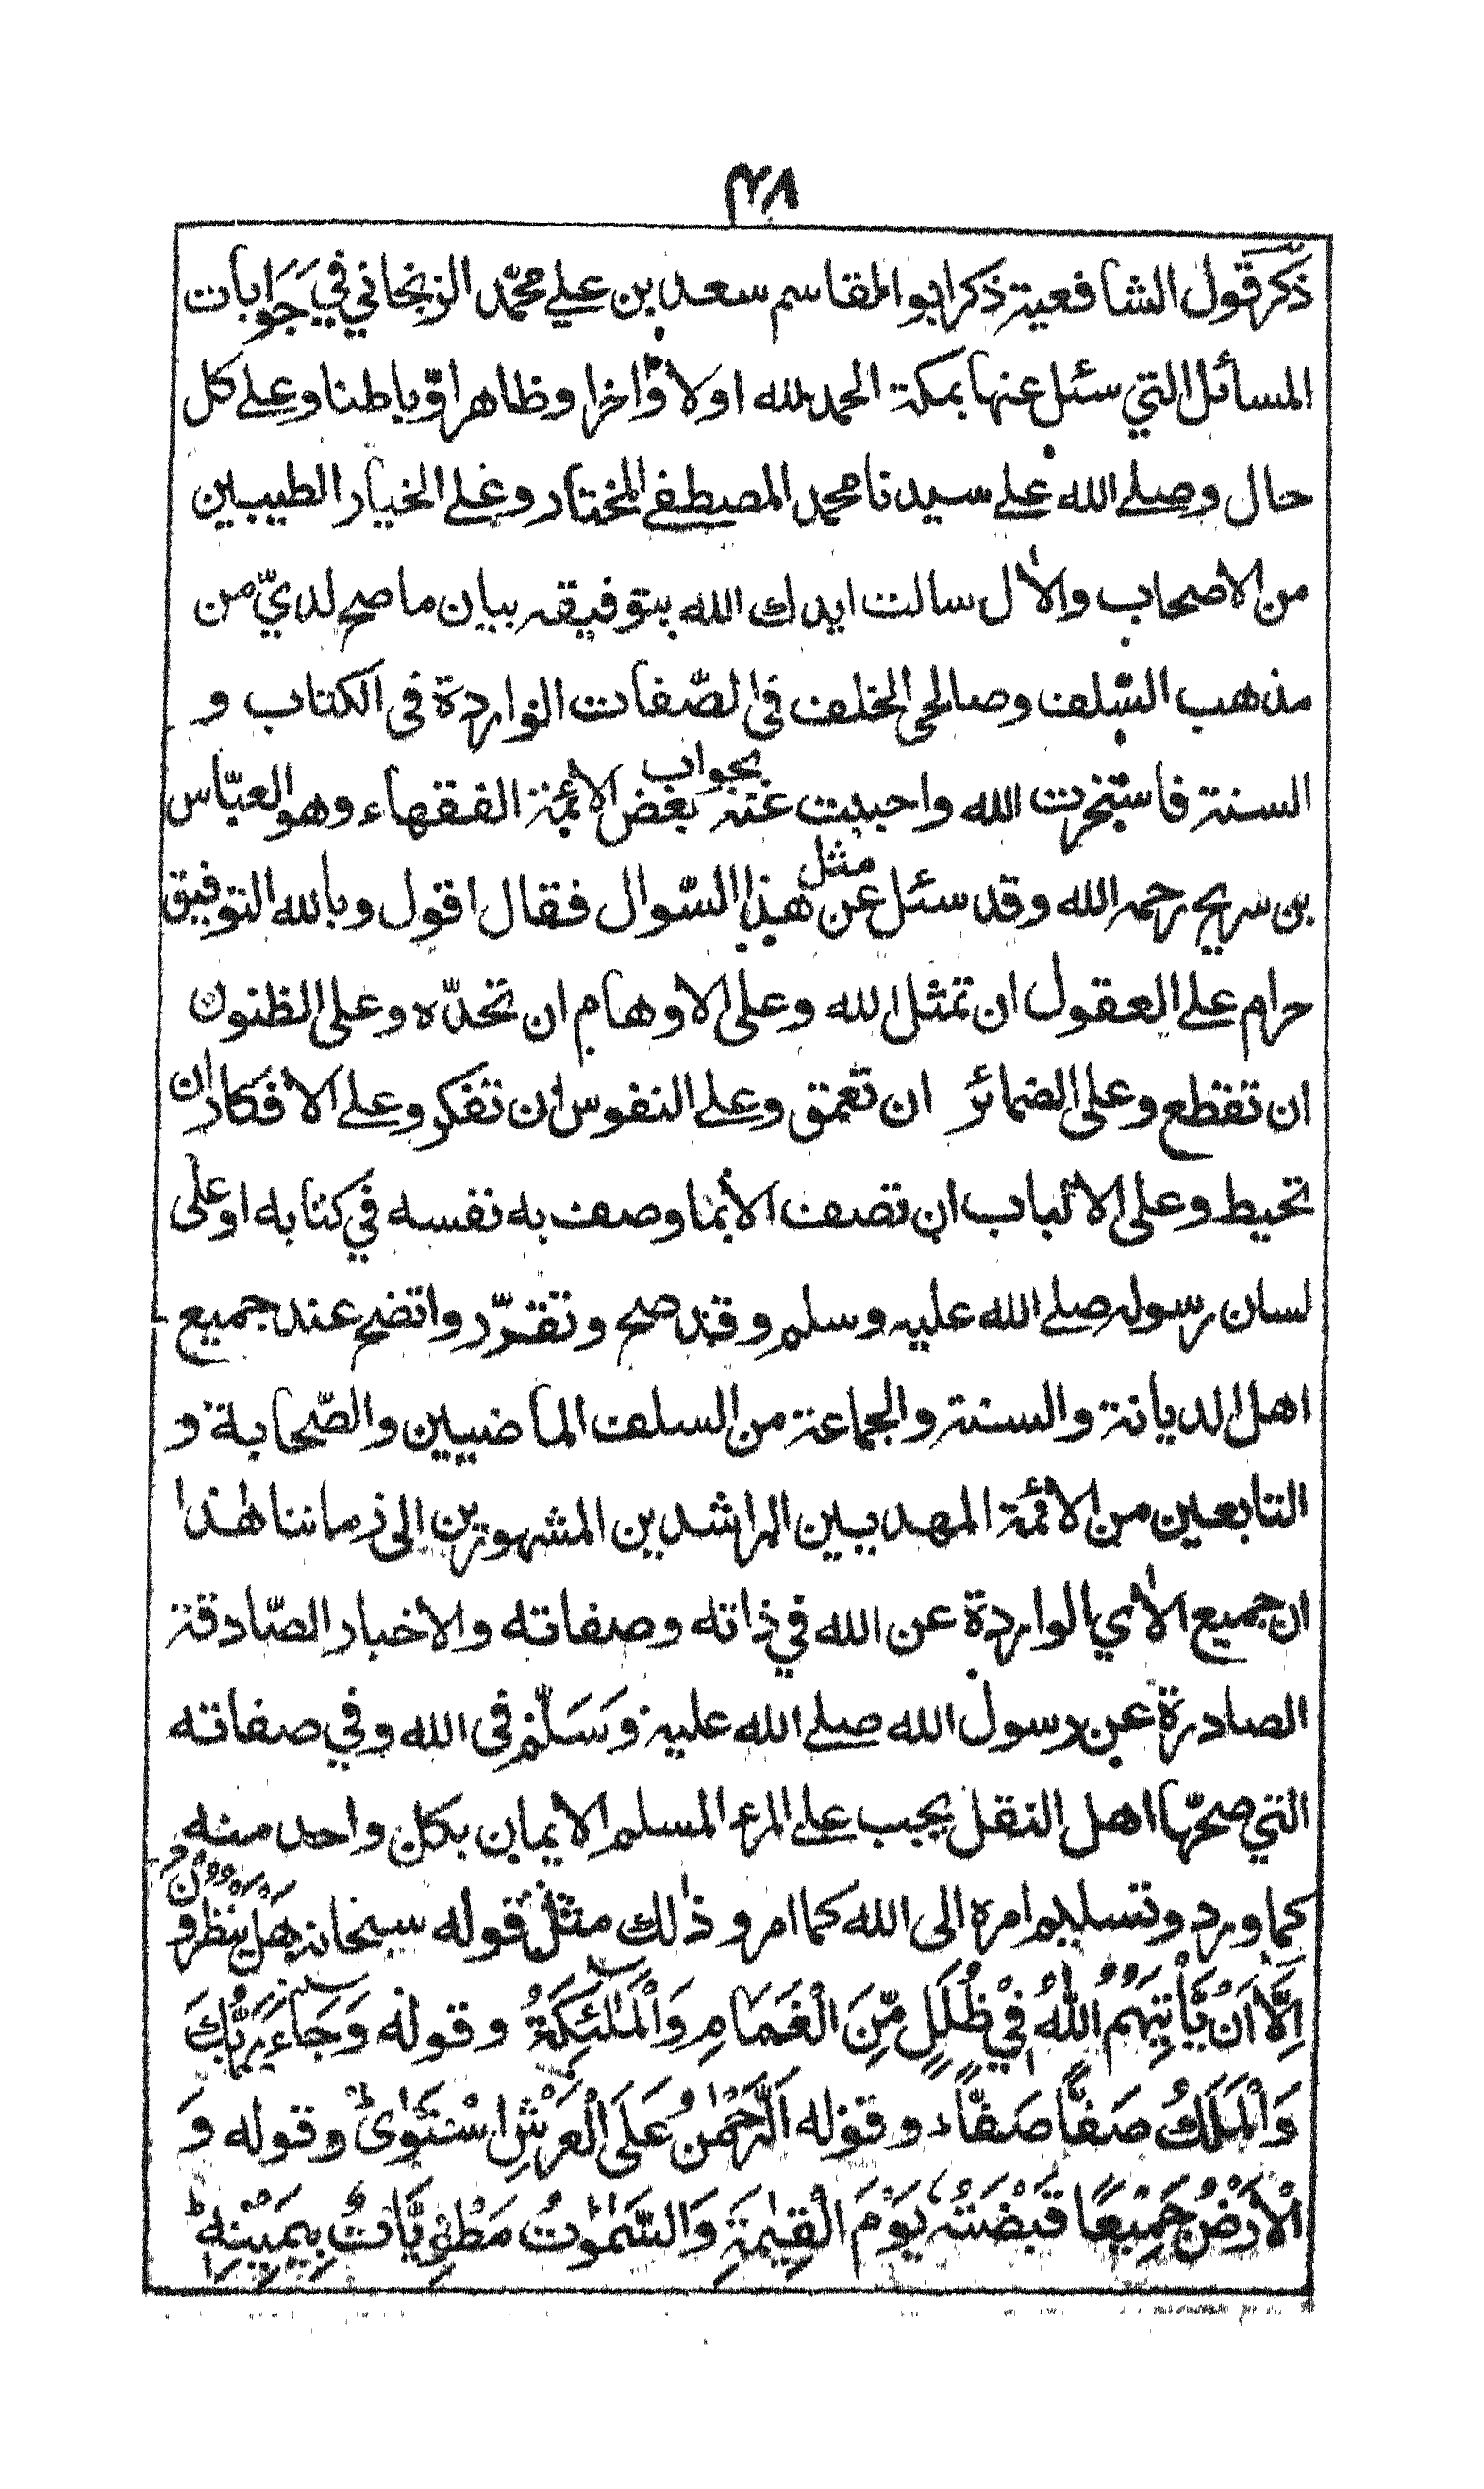 ٢٨
ذكر قول الشافعية ذكر ابو القاسم سعد بن علي محمّد الزنجاني في جَوَابات
المسائل التي سئل عنها بمكة الحمد لله اولا وّاخرا وظاهرا وّباطنا وعلى كل
حال وصلى الله على سيدنا محمد المصطفى المختار وعلى الخيار الطيبين
من الاصحاب والاٰل سالت ايدك الله بتوفيقه ببيان ما صح لديّ من
مذهب السّلف وصالحي الخلف في الصّفات الواردة في الكتاب و
السنة فاستخرت الله واجبيت عنه بجواب بعض الائمة الفقهاء وهو العبّاس
بن سريج رحمه الله وقد سئل عن مثل هذا السّوال فقال اقول وبالله التوفيق
حرام على العقول ان تمثل الله وعلى الاوهام ان تحدّه وعلى الظنون
ان تقطع وعلى الضمائر ان تعمق وعلى النفوس ان تفكر وعلى الافكار ان
تحيط وعلى الالباب ان تصف الا بما وصف به نفسه في كتابه او على
لسان رسوله صلى الله عليه وسلم وقد صح وتقرّر واتضح عند جميع
اهل الديانة والسنة والجماعة من السلف الماضيين والصّحابة و
التابعين من الائمة المهديين الراشدين المشهورين الى زماننا هٰذا
ان جميع الاٰي الواردة عن الله في ذاته وصفاته والاخبار الصّادقة
الصادرة عن رسول الله صلى الله عليه وَسَلّم في الله وفي صفاته
التي صحّها اهل النقل يجب على المرء المسلم الايمان بكل واحد منه
كما ورد وتسليم امره الى الله كما امر و ذٰلك مثل قوله سبحانه هَلْ يَنْظُرُوْنَ
اِلَّا اَنْ يَّأْتِيَهُمُ اللّٰهُ فِيْ ظُلَلٍ مِّنَ الْغَمَامِ وَالْمَلٰئِكَةُ وقوله وَجَاءَ رَبُّكَ
وَالْمَلَكُ صَفًّا صَفًّا وقوله اَلرَّحْمٰنُ عَلَى الْعَرْشِ اسْتَوٰى وقوله وَ
الْاَرْضُ جَمِيْعًا قَبْضَتُهٗ يَوْمَ الْقِيٰمَةِ وَالسَّمٰوٰتُ مَطْوِيَّاتٌ بِيَمِيْنِهٖ ط